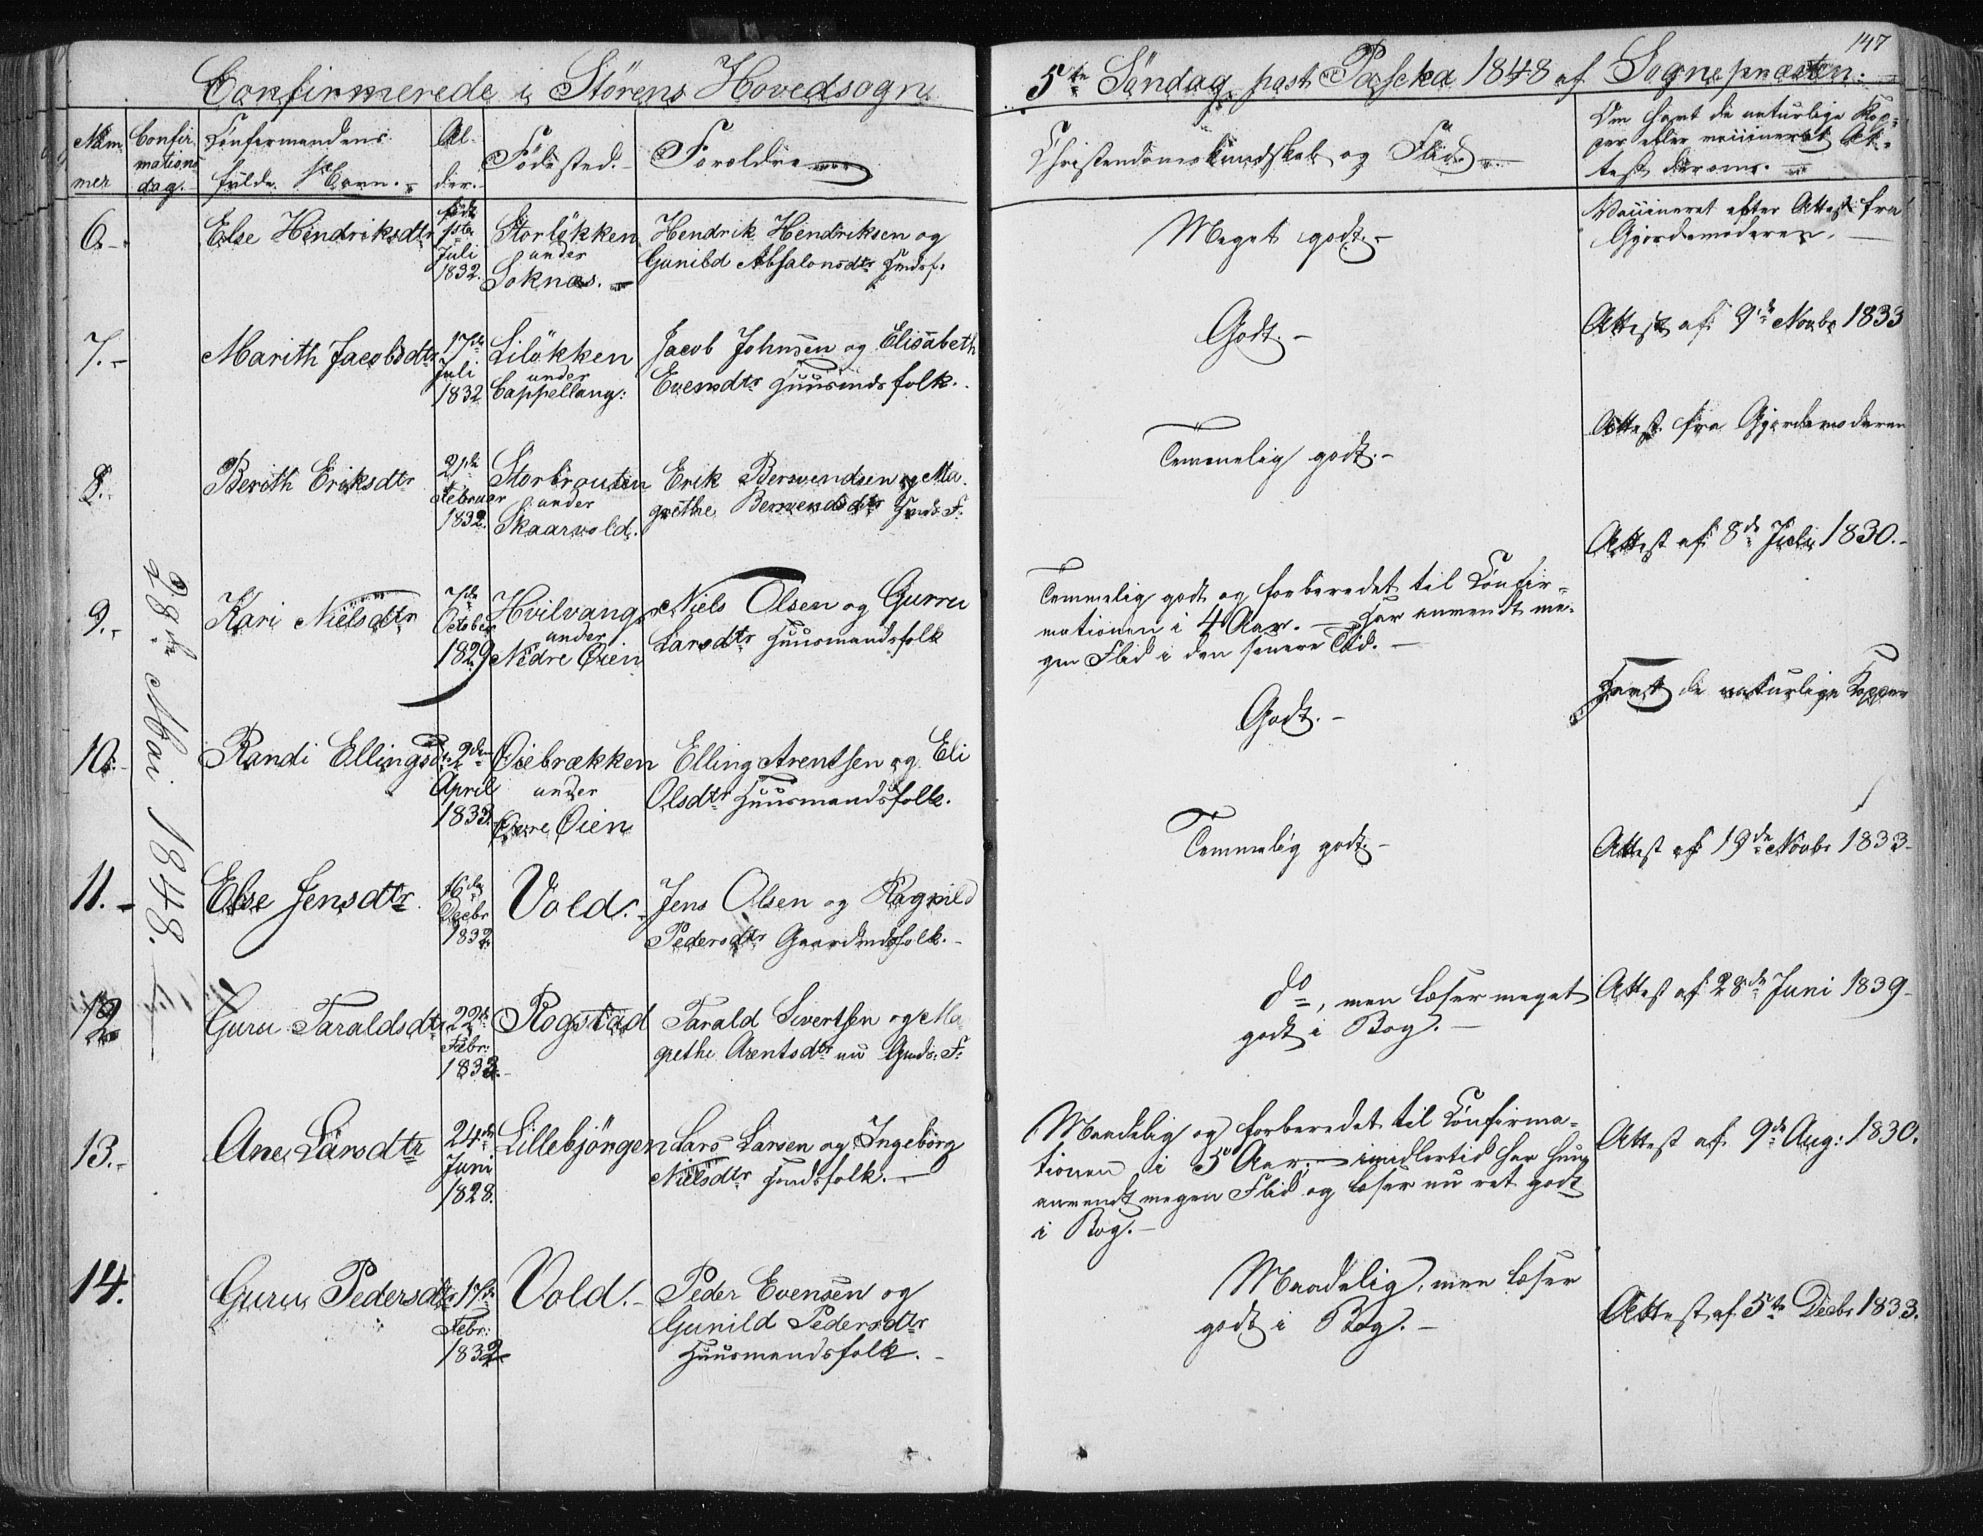 147
Confirmerede i Störens Hovedsogn 5te Söndag post Pascha 1848 af Sognepræsten:
Num-
mer
Confir-
mations
dag.
Confirmandens
fulde Navn.
Al-
der.
Födested.
Forældre
Christendomskundskab og Flid.
Om havt de naturlige Kop-
per eller vaccineret At-
test derom.
28de Mai 1848.
6.
Else Hendriksdtr
födt
Juli
1832.
Storlökken
under
Soknæs.
Hendrik Hendriksen og
Gunild Absalonsdtr Hmdsf.
Meget godt.
Vaccineret efter Attest fra
Gjordemoderen.
7.
Marith Jacobsdtr
17de
Juli
1832
Lilökken
under
Cappellang:
Jacob Johnsen og Elisabeth
Evensdtr Huusmdsfolk.
Godt.
Attest af 9de Novbr 1833
8.
Berith Eriksdtr
21de
Februar
1832.
Storbrouten
under
Skaarvold.
Erik Bersvendsen og Ma-
grethe Bersvendsdtr Hmds. F.
Temmelig godt.
Attest fra Gjordemoderen
9.
Kari Nielsdtr
7de
October
1829
Hvilvang
under
Nedre Öien
Niels Olsen og Gurru
Larsdtr Huusmandsfolk
Temmelig godt og forberedet til Confir-
mationen i 4 Aar. — Har anvendt me-
gen Flid i den senere Tid.
Attest af 8de Juli 1830.
10.
Randi Ellingsd
2den
April
1833.
Öiebrækken
under
Övre Öien
Elling Arentsen og Eli
Olsdtr Huusmandsfolk.
Godt.
Havt de naturlige Kopper
11.
Else Jensdtr
16de
Decbr
1832.
Vold.
Jens Olsen og Ragnild
Pedersdtr Gaardmdsfolk.
Temmelig godt.
Attest af 19de Novbr 1833
12
Guru Taraldsdtr
22de
Febr:
1833.
Rogstad
Tarald Sivertsen og Ma-
grethe Arentsdtr nu Gmds: F.
do, men læser meget
godt i Bog.
Attest af 28de Juni 1839
13.
Ane Larsdtr
24de
Juni
1828.
Lillebjörgen
Lars Larsen og Ingebörg
Nielsdtr Hmdsfolk.
Maadelig og forberedet til Confirma-
tionen i 5 Aar; — imidlertid har hun
anvendt megen Flid og læser nu ret godt
i Bog.
Attest af 9de Aug: 1830.
14.
Guru Pedersdtr
17de
Febr:
1832
Vold.
Peder Evensen og
Gunild Pedersdtr
Huusmandsfolk.
Maadelig, men læser
godt i Bog.
Attest af 5te Decbr 1833.